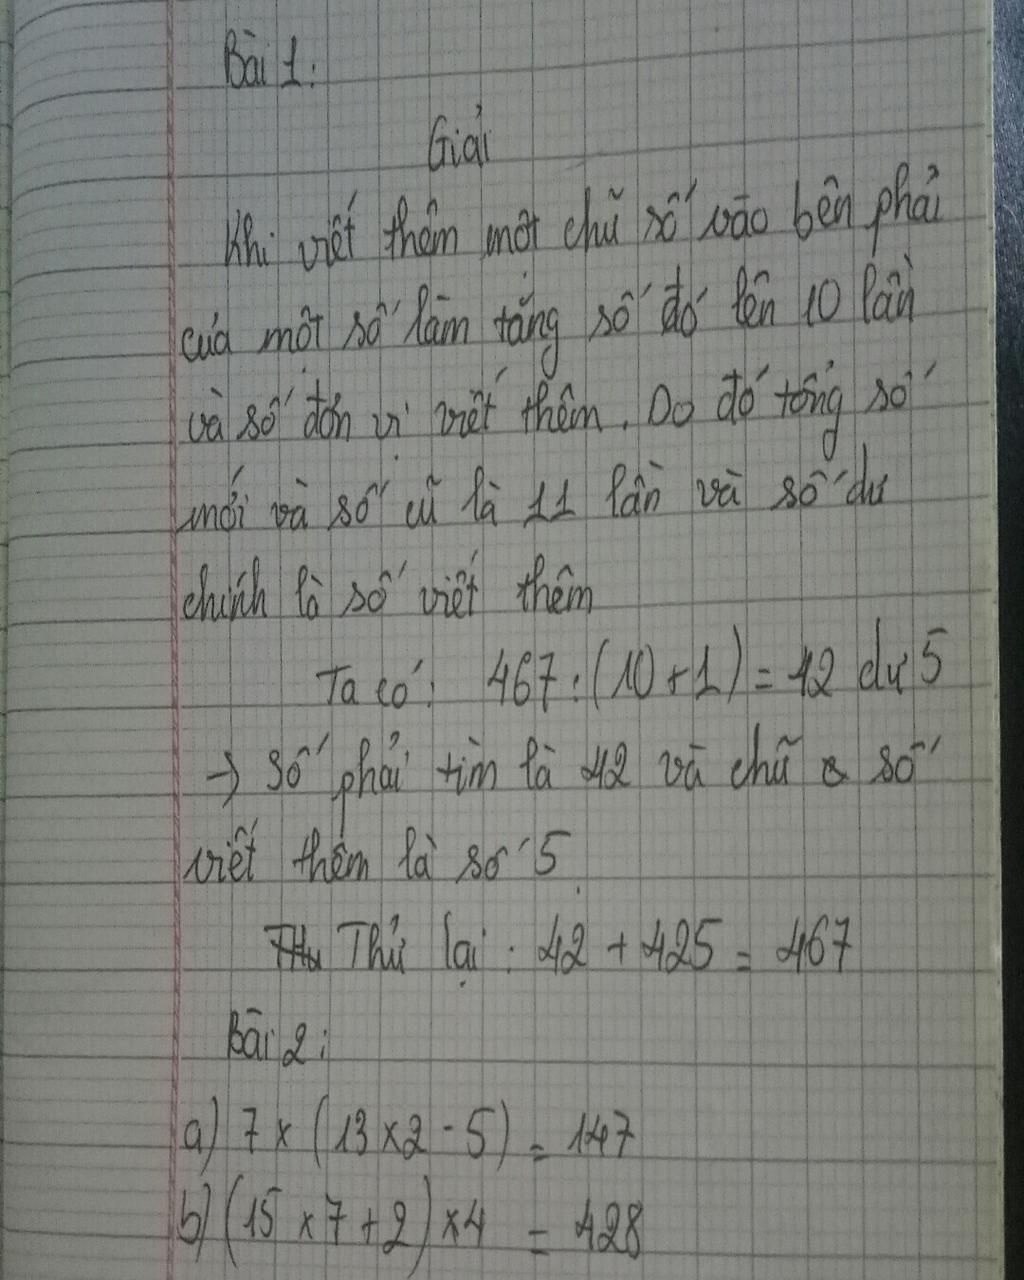 Bài 1:
Giải
Khi viết thêm một chữ số vào bên phải
của một số làm tăng số đó lên 10 lần
và số đơn vị viết thêm. Do đó tổng số
mới và số cũ là 11 lần và số dư
chính là số viết thêm
Ta có: 467 : (10 + 1) = 42 dư 5
→ số phải tìm là 42 và chữ số
viết thêm là số 5
Thử lại : 42 + 425 = 467
Bài 2:
a) 7 x (13 x 2 - 5) = 147
b) (15 x 7 + 2) x 4 = 428